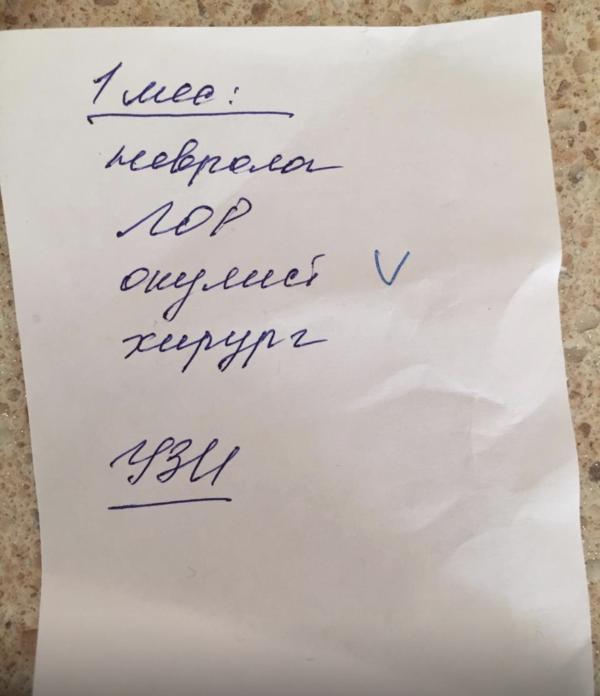 1 мес:
невролог
ЛОР
окулист V
хирург
УЗИ